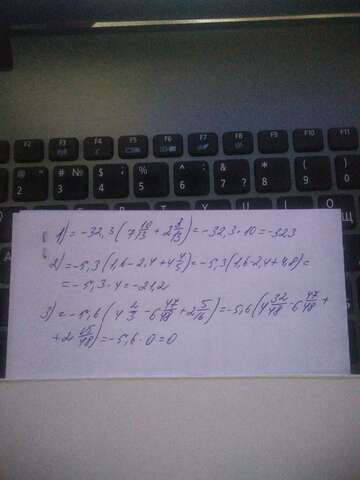 F2 F3 F4 F5 F6 F7 F8 F9 F10 F11
1) = -32,3(7 10/13 + 2 3/13) = -32,3·10 = -323
2) = -5,3(1,6 - 2,4 + 4 4/5) = -5,3(1,6 - 2,4 + 4,8) =
= -5,3·4 = -21,2
3) = -5,6(4 2/3 - 6 47/48 + 2 5/16) = -5,6(4 32/48 - 6 47/48 +
+ 2 15/48) = -5,6·0 = 0